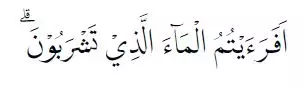 اَفَرَءَيْتُمُ الْمَآءَ الَّذِيْ تَشْرَبُوْنَۗ